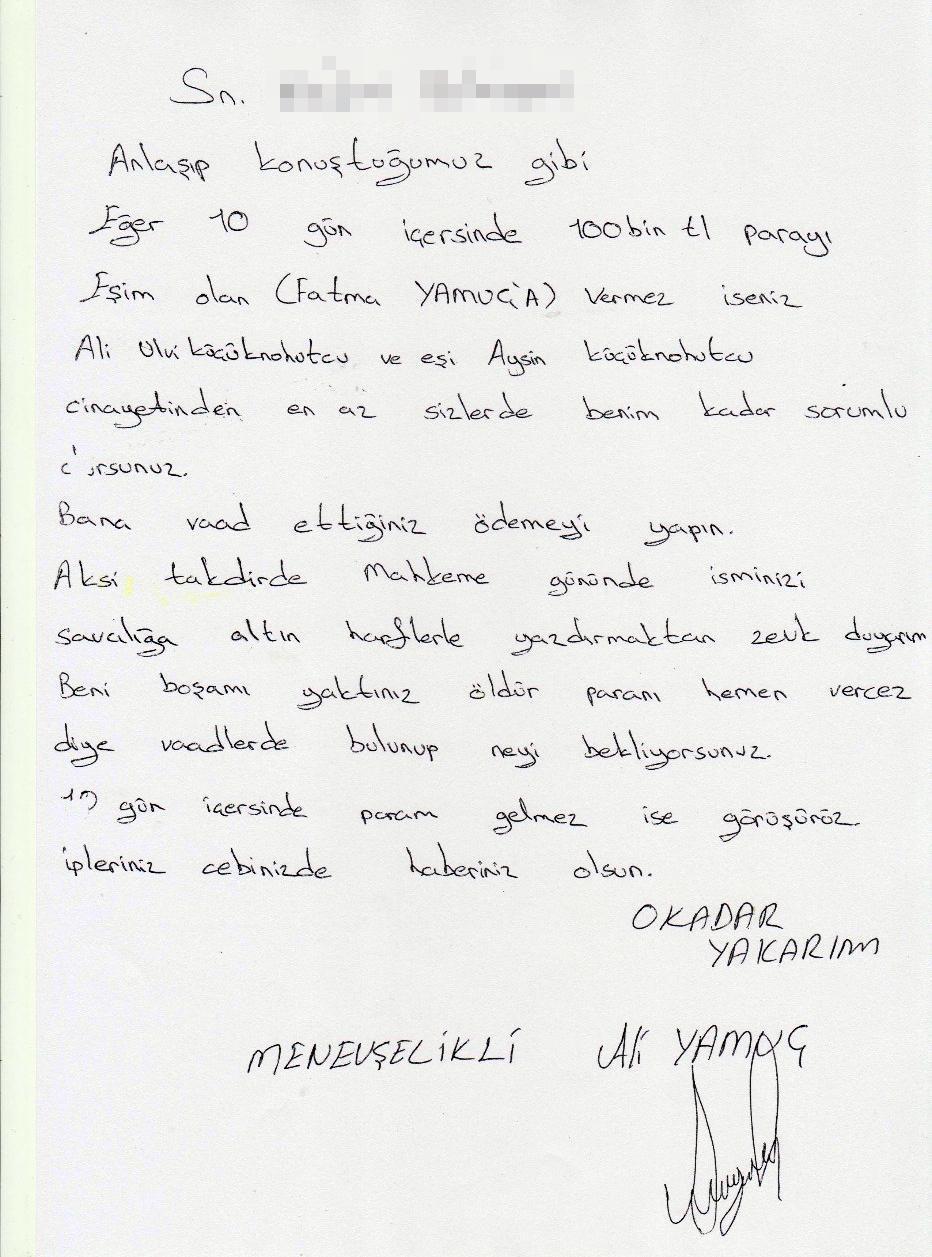 Sn.
Anlaşıp konuştoğumuz gibi
Eğer 10 gün içersinde 100bin tl parayı
Eşim olan (Fatma YAMUÇ'A) Vermez iseniz
Ali Ulvi küçüknohutcu ve eşi Aysin küçüknohutcu
cinayetinden en az sizlerde benim kadar sorumlu
Bana vaad ettiğiniz ödemeyi yapın.
Aksi takdirde Mahkeme gününde isminizi
savcılığa altın harflerle yazdırmaktan zevk duyarım
Beni boşamı yaktınız öldür paranı hemen vercez
diye vaadlerde bulunup neyi bekliyorsunuz.
gün içersinde param gelmez ise görüşürüz.
ipleriniz cebinizde haberiniz olsun.
OKADAR
YAKARIM
MENEVŞELİKLİ Ali YAMUÇ